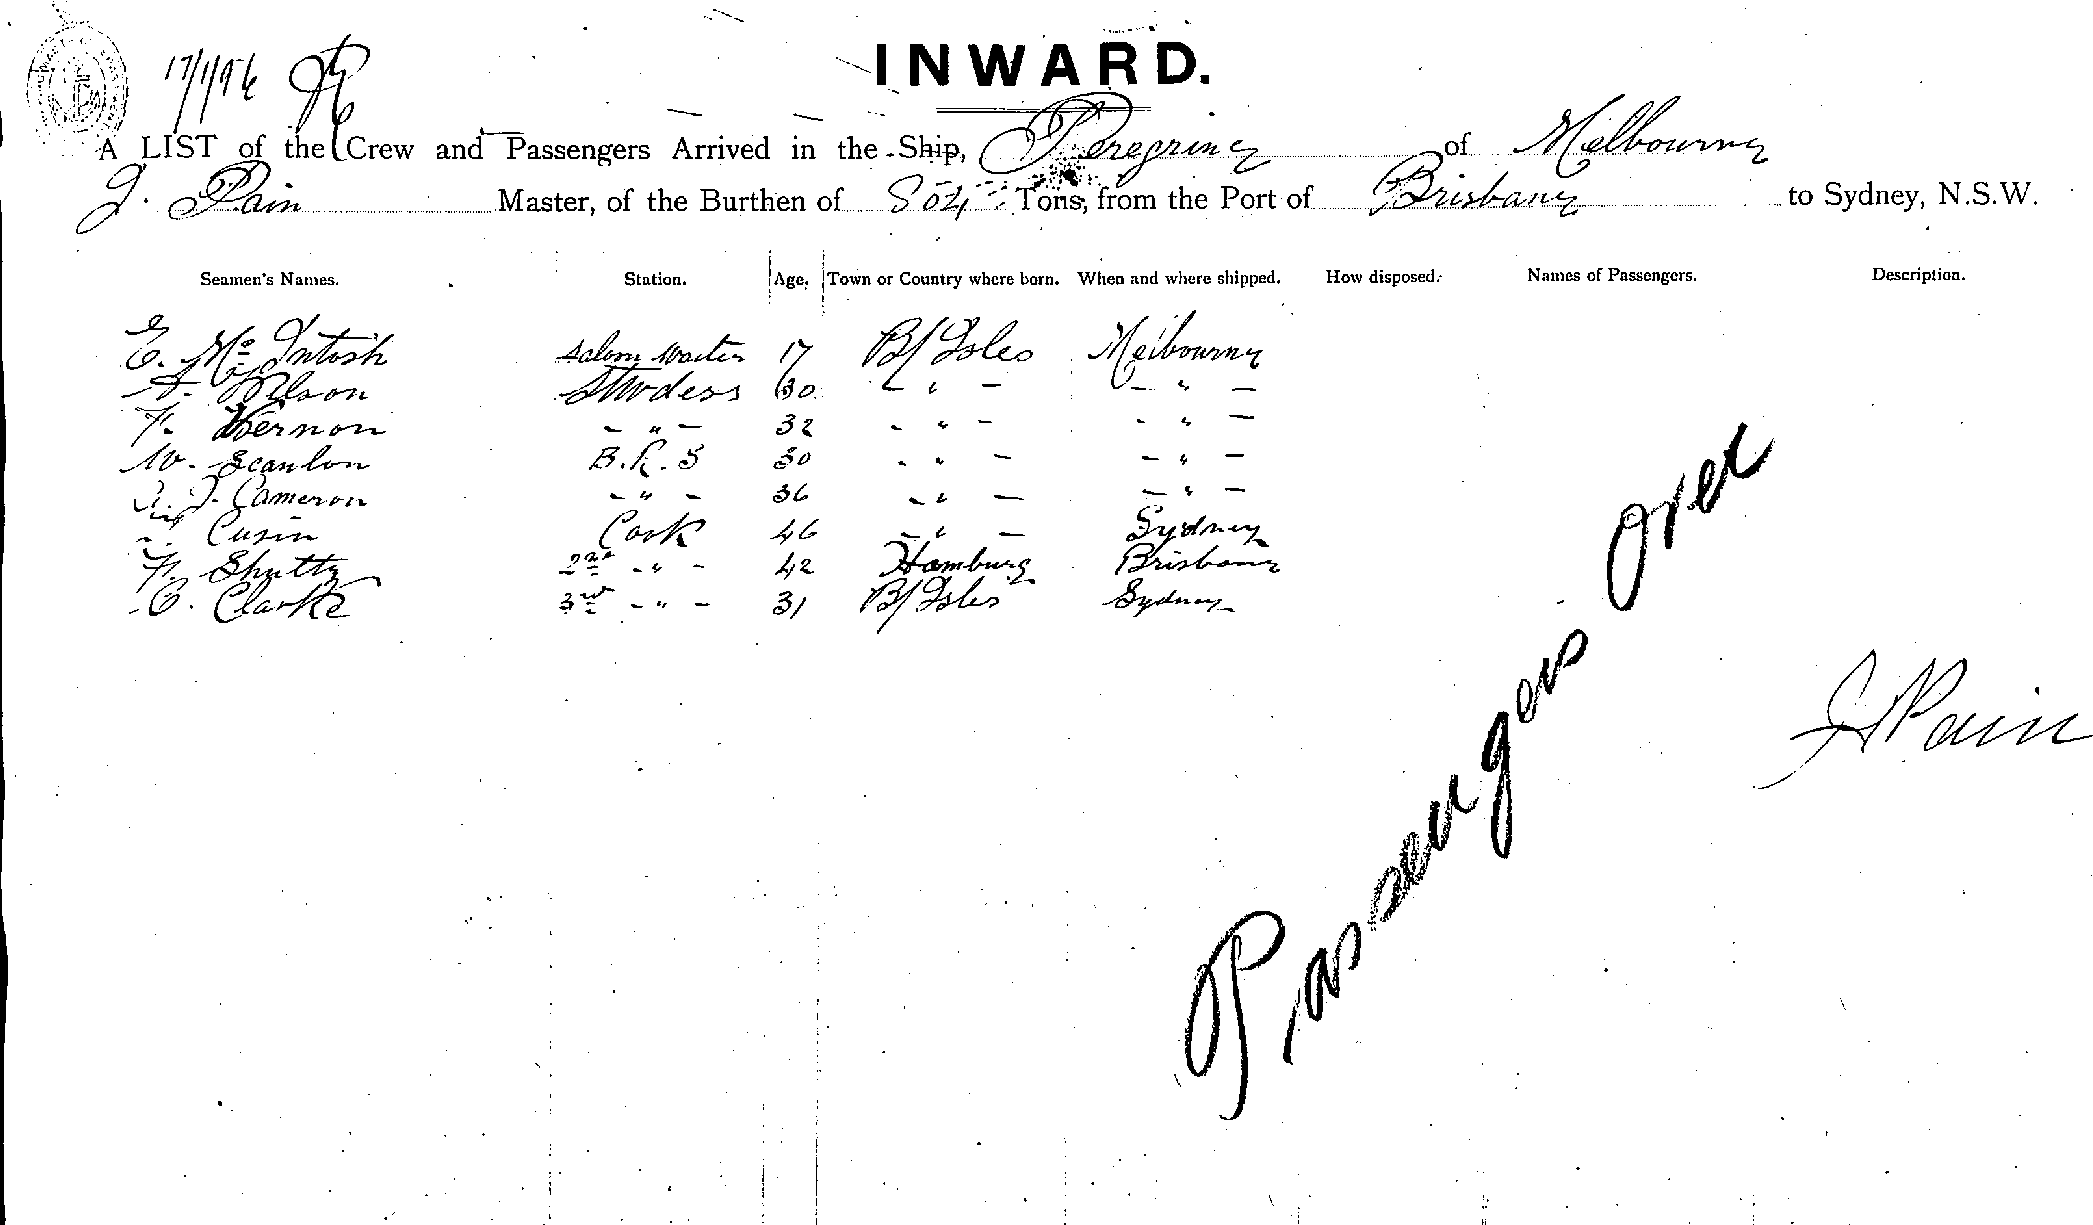 17/1/96
INWARD.
A LIST of the Crew and Passengers Arrived in the Ship, Peregrine of Melbourne
J. Pain Master, of the Burthen of 804 Tons, from the Port of Brisbane to Sydney, N.S.W.
Seamen's Names. Station. Age. Town or Country where born. When and where shipped. How disposed. Names of Passengers. Description.
E. McIntosh Saloon Waiter 17 B/Isles Melbourne
Wilson Stwdess 30 - " - - " -
F. Vernon - " - 32 - " - - " -
W. Scanlon B.R.S 30 - " - - " -
J. Cameron - " - 36 - " - - " -
Cusin Cook 46 - " - Sydney
F. Shutty 2nd - " - 42 Hamburg Brisbane
C. Clarke 3rd - " - 31 B/Isles Sydney
Passengers over
J Pain